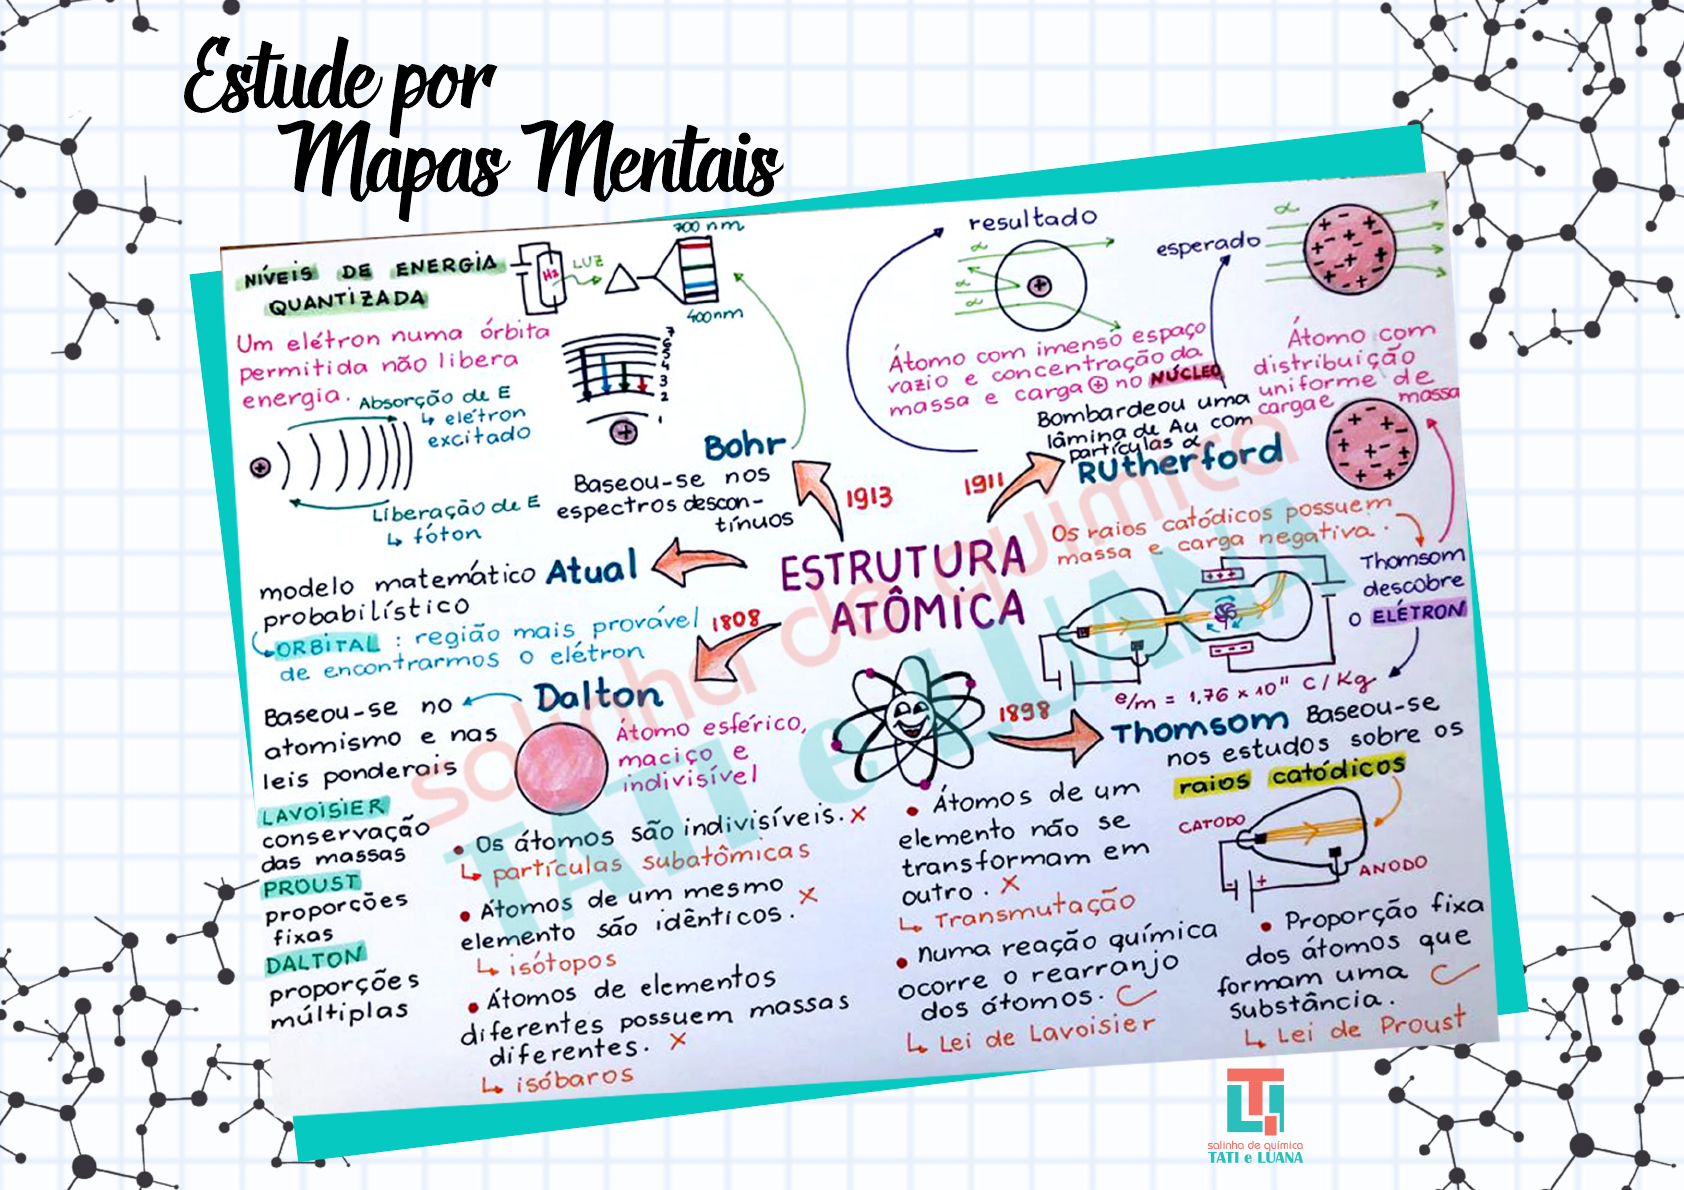 Estude por
Mapas Mentais
NÍVEIS DE ENERGIA
QUANTIZADA
Um elétron numa órbita
permitida não libera
energia.
Absorção de E
↳ elétron
excitado
Liberação de E
↳ fóton
H2
LUZ
700 nm
400nm
7
6
5
4
3
2
1
Bohr
Baseou-se nos
espectros descon-
tínuos
1913
resultado
α
α
α
Átomo com imenso espaço
vazio e concentração da
massa e carga ⊕ no NÚCLEO
esperado
α
Átomo com
distribuição
uniforme de
carga e massa
Bombardeou uma
lâmina de Au com
partículas α
Rutherford
1911
Os raios catódicos possuem
massa e carga negativa.
Thomsom
descobre
o ELÉTRON
e/m = 1,76 x 10¹¹ C/Kg
ESTRUTURA
ATÔMICA
Atual
modelo matemático
probabilístico
ORBITAL : região mais provável
de encontrarmos o elétron
1808
Dalton
Baseou-se no
atomismo e nas
leis ponderais
LAVOISIER
conservação
das massas
PROUST
proporções
fixas
DALTON
proporções
múltiplas
Átomo esférico,
maciço e
indivisível
• Os átomos são indivisíveis. X
↳ partículas subatômicas
• Átomos de um mesmo
elemento são idênticos. X
↳ isótopos
• Átomos de elementos
diferentes possuem massas
diferentes. X
↳ isóbaros
• Átomos de um
elemento não se
transformam em
outro. X
↳ Transmutação
• Numa reação química
ocorre o rearranjo
dos átomos.
↳ Lei de Lavoisier
1898
Thomsom Baseou-se
nos estudos sobre os
raios catódicos
CATODO
ANODO
- +
• Proporção fixa
dos átomos que
formam uma
substância.
↳ Lei de Proust
salinha de química
TATI e LUANA
salinha de química
TATI e LUANA